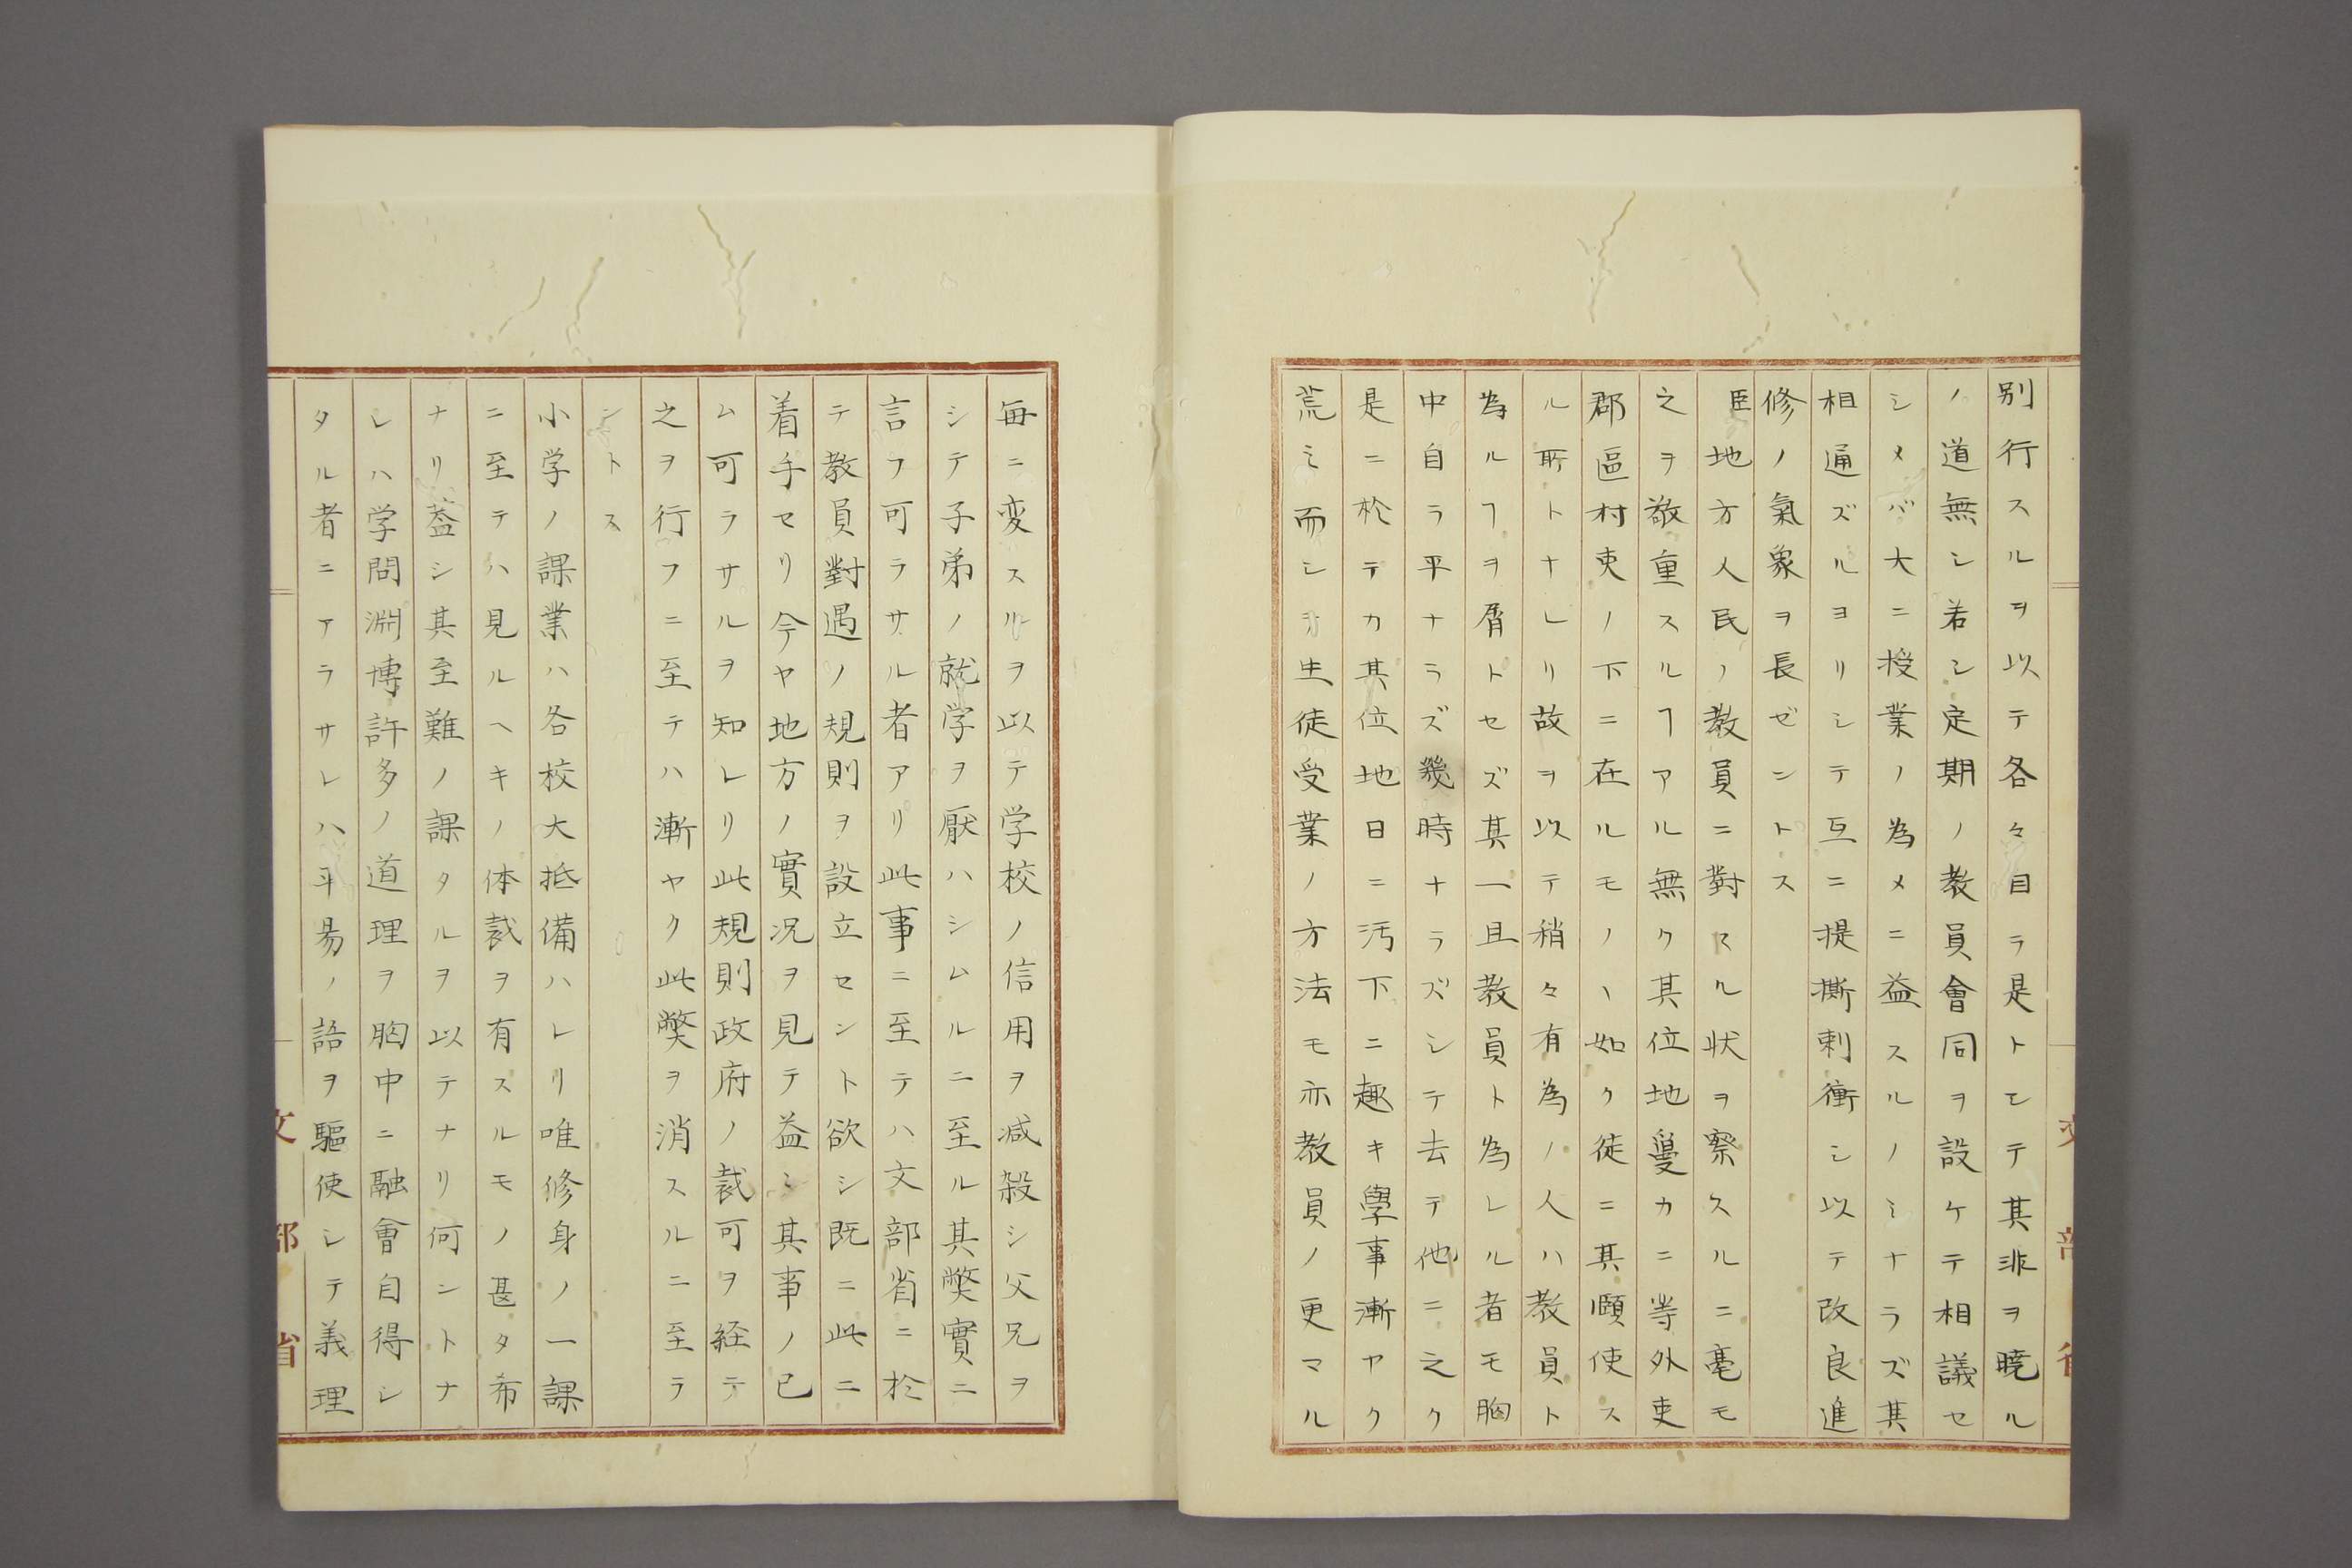 別行スルヲ以テ各々自ラ是トシテ其非ヲ暁ル
ノ道無シ若シ定期ノ教員會同ヲ設ケテ相議セ
シメバ大ニ授業ノ為メニ益スルノミナラズ其
相通ズルヨリシテ互ニ提撕刺衝シ以テ改良進
修ノ氣象ヲ長ゼントス
臣地方人民ノ教員ニ對スル状ヲ察スルニ毫モ
之ヲ敬重スルヿアル無ク其位地蔓カニ等外吏
郡區村吏ノ下ニ在ルモノヽ如ク徒ニ其頤使ス
ル所トナレリ故ヲ以テ稍々有為ノ人ハ教員ト
為ルヿヲ屑トセズ其一旦教員ト為レル者モ胸
中自ラ平ナラズ幾時ナラズシテ去テ他ニ之ク
是ニ於テカ其位地日ニ汚下ニ趣キ學事漸ヤク
荒ミ而シ生徒受業ノ方法モ亦教員ノ更マル
毎ニ変スルヲ以テ学校ノ信用ヲ減殺シ父兄ヲ
シテ子弟ノ就学ヲ厭ハシムルニ至ル其獘實ニ
言フ可ラサル者アリ此事ニ至テハ文部省ニ於
テ教員對遇ノ規則ヲ設立セント欲シ既ニ此ニ
着手セリ今ヤ地方ノ實况ヲ見テ益ミ其事ノ已
ム可ラサルヲ知レリ此規則政府ノ裁可ヲ経テ
之ヲ行フニ至テハ漸ヤク此獘ヲ消スルニ至ラ
ントス
小学ノ課業ハ各校大抵備ハレリ唯修身ノ一課
ニ至テハ見ルヘキノ体裁ヲ有スルモノ甚タ希
ナリ蓋シ其至難ノ課タルヲ以テナリ何ントナ
レハ学問淵博許多ノ道理ヲ胸中ニ融會自得シ
タル者ニアラサレハ平易ノ語ヲ驅使シテ義理
文部省